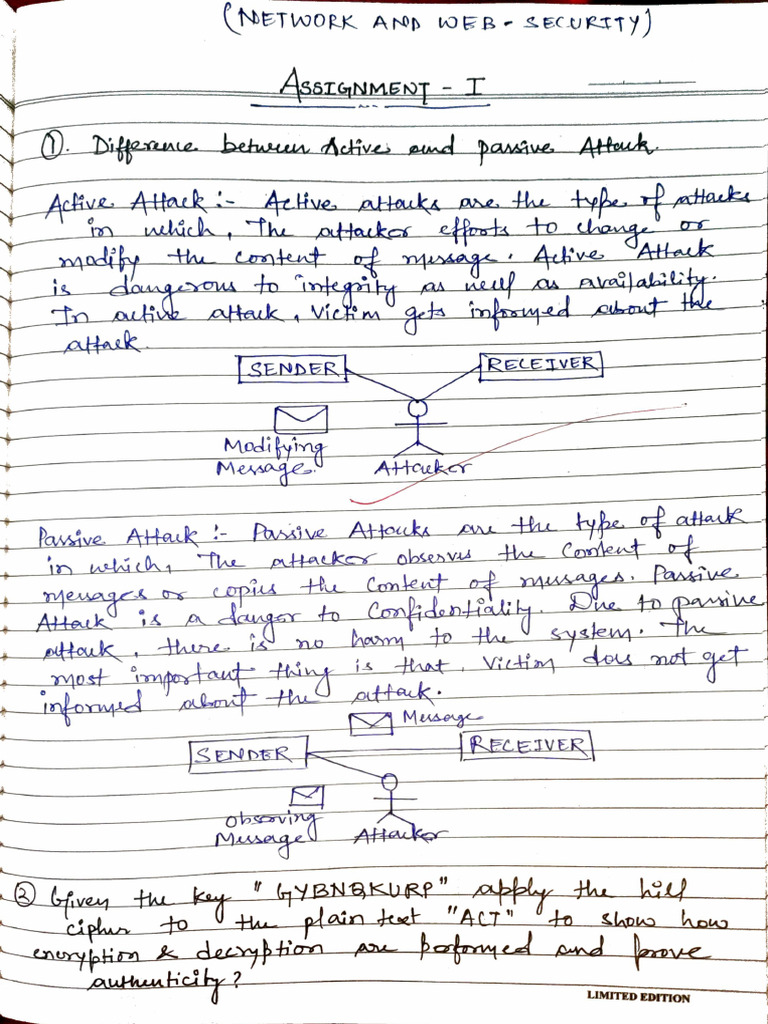 (NETWORK AND WEB - SECURITY)
ASSIGNMENT - I
①. Difference between Active and passive Attack.
Active Attack :- Active attacks are the type of attacks
in which, The attacker efforts to change or
modify the content of message. Active Attack
is dangerous to integrity as well as availability.
In active attack, Victim gets informed about the
attack.
SENDER RECEIVER
Modifying
Message.
Attacker
Passive Attack :- Passive Attacks are the type of attack
in which, The attacker observes the content of
messages or copies the content of messages. Passive
Attack is a danger to Confidentiality. Due to passive
attack, there is no harm to the system. The
most important thing is that, Victim does not get
informed about the attack.
Message
SENDER RECEIVER
Observing
Message
Attacker
② Given the key "GYBNQKURP" apply the hill
cipher to the plain text "ACT" to show how
encryption & decryption are performed and prove
authenticity?
LIMITED EDITION